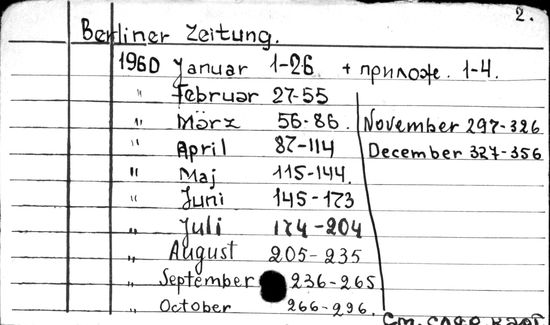 2.
Berliner Zeitung.
1960 Januar 1-26. + прилож. 1-4.
" Februar 27-55
" März 56-86.
" April 87-114
" Maj 115-144.
" Juni 145-173
" Juli 174-204
" August 205-235
" September 236-265
" October 266-296.
November 297-326
December 327-356
См. след. карт